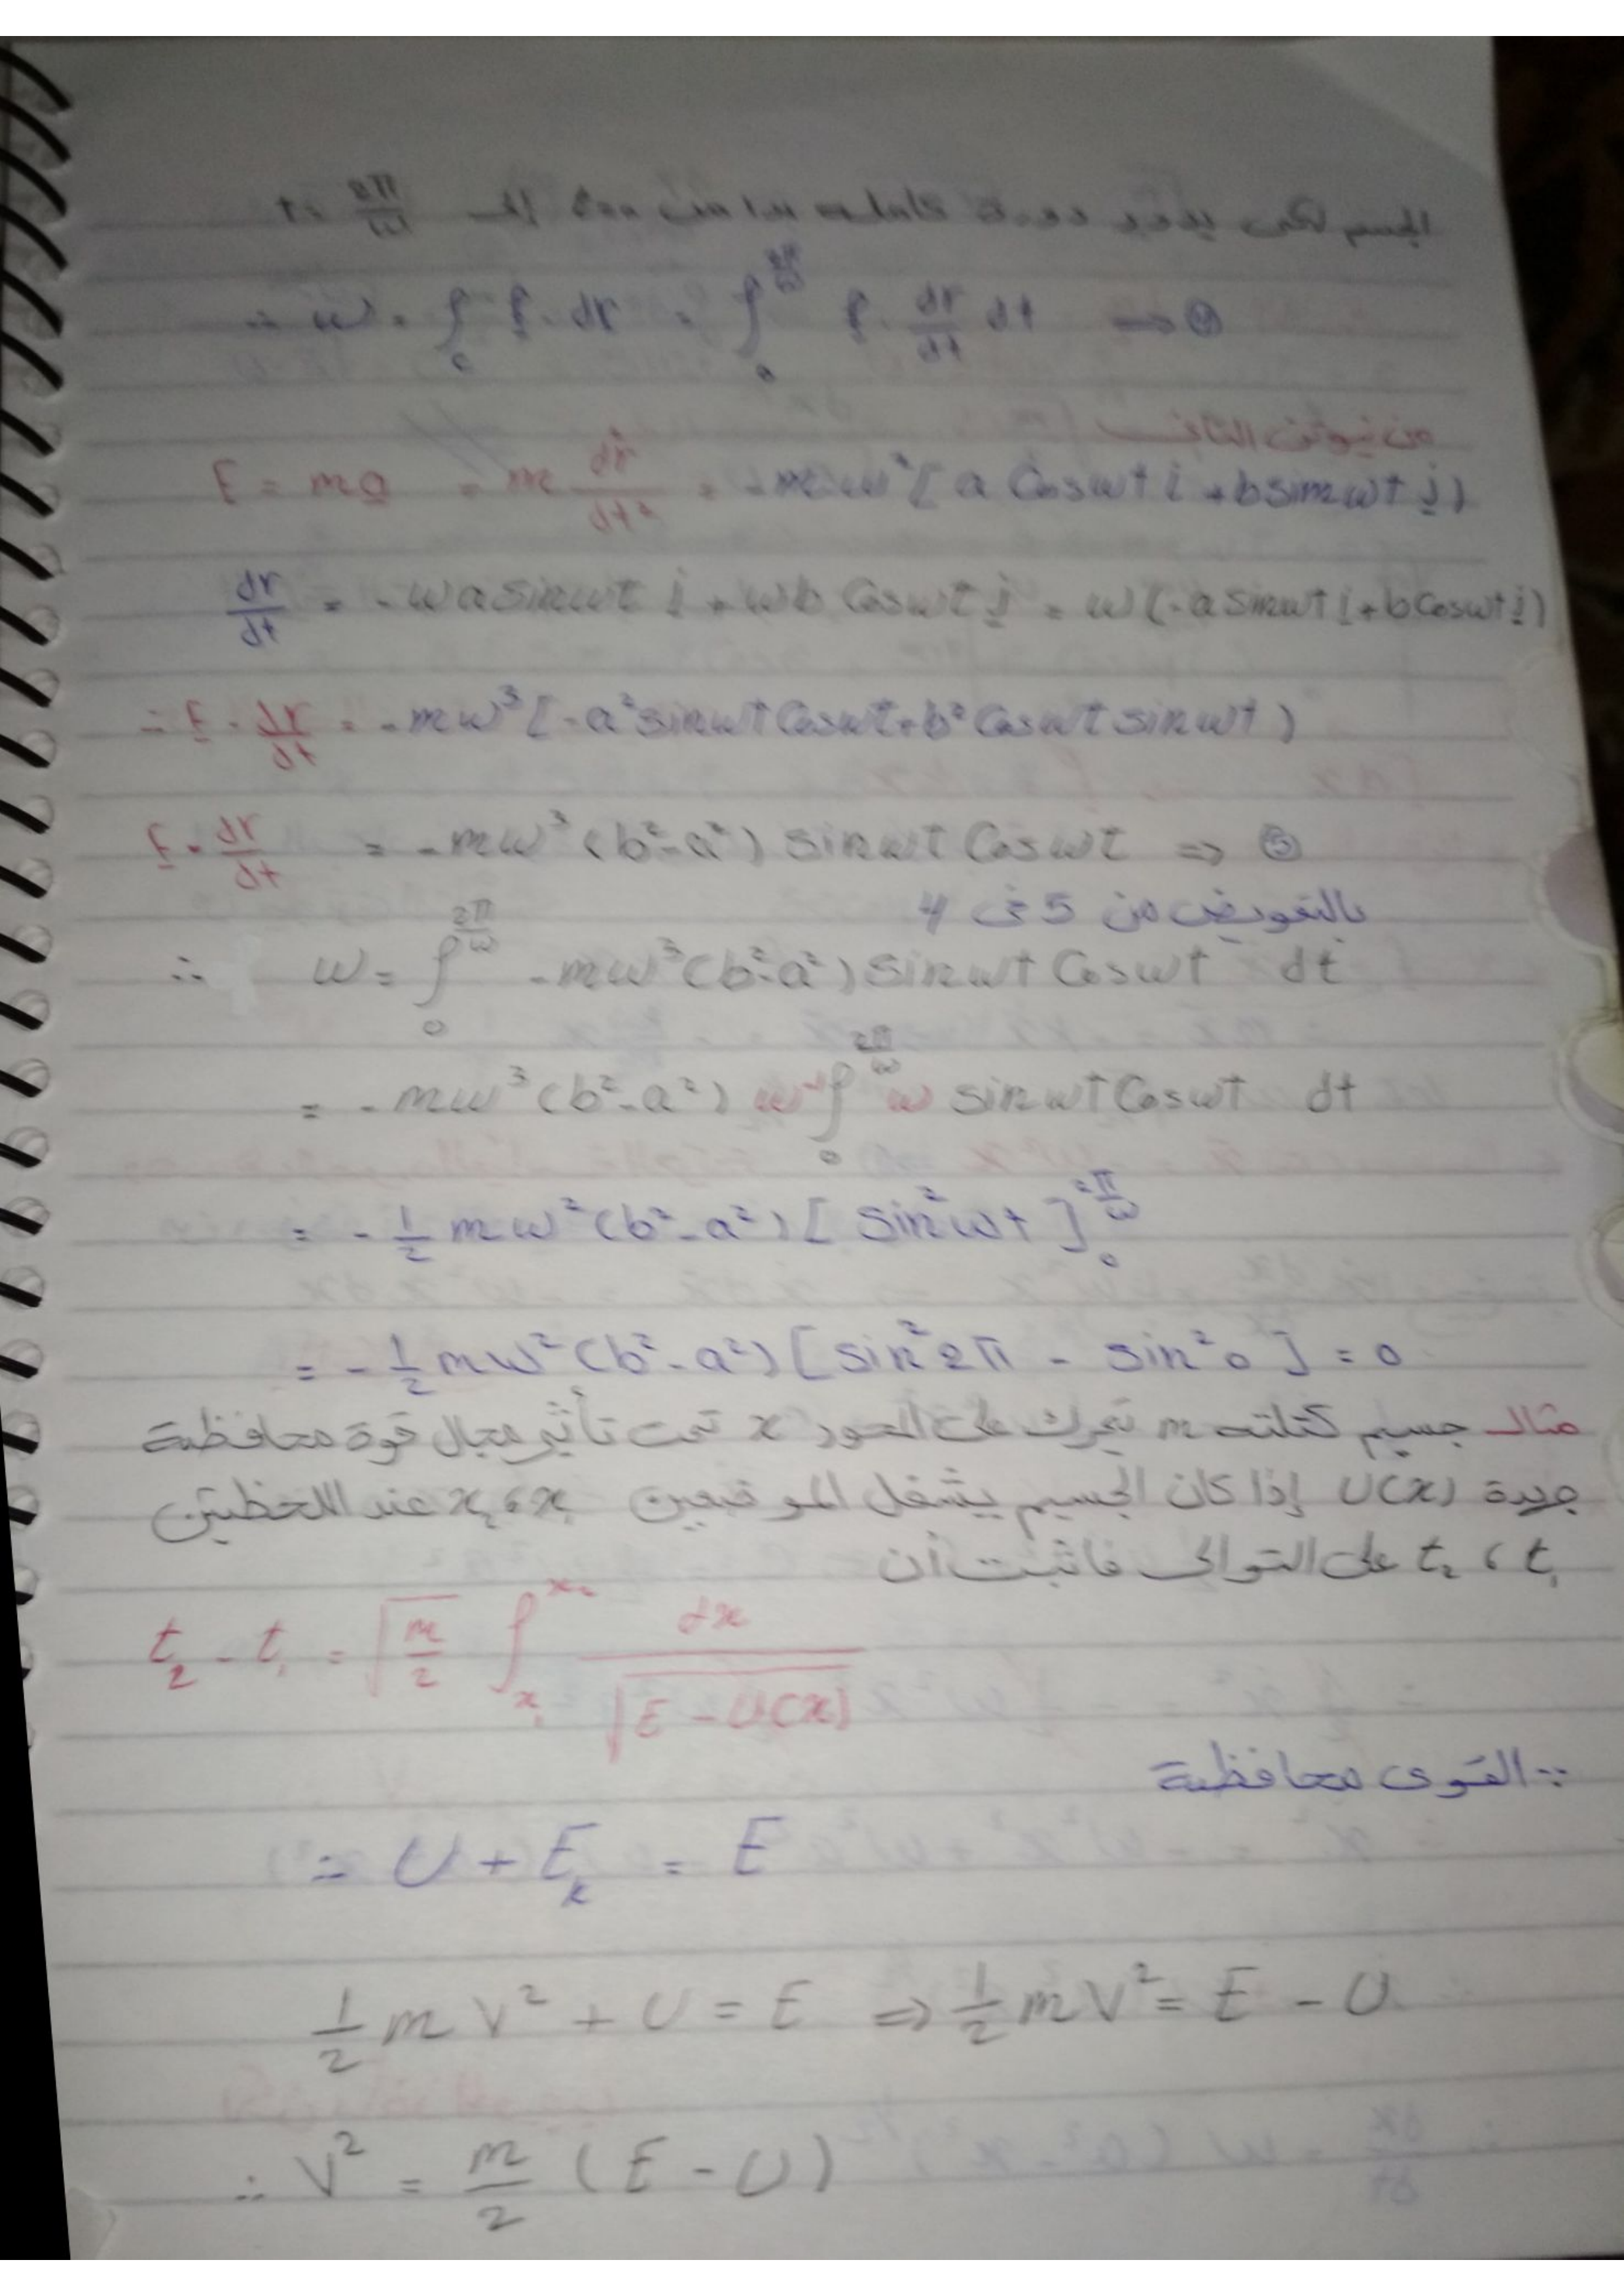 الجسم لكى يدور دورة كاملة بدا من t=0 الى t = 2π/ω
∴ w = ∫₀ F · dr = ∫₀^(2π/ω) F · dr/dt dt ⟹ ④
من نيوتن الثانى
F = ma = m dr/dt² = -mω²[a Cosωt i + b sinωt j)
dr/dt = -ωa sinωt i + ωb Cosωt j = ω(-a sinωt i + b Cosωt j)
∴ F · dr/dt = -mω³[-a² sinωt Cosωt + b² Cosωt sinωt)
F · dr/dt = -mω³(b²-a²) sinωt Cosωt ⟹ ⑤
بالتعويض من 5 فى 4
∴ w = ∫₀^(2π/ω) -mω³(b²-a²) sinωt Cosωt dt
= -mω³(b²-a²) ω⁻¹ ∫₀^(2π/ω) ω sinωt Cosωt dt
= -1/2 mω²(b²-a²)[sin²ωt]₀^(2π/ω)
= -1/2 mω²(b²-a²)[sin²2π - sin²0] = 0
مثال جسيم كتلته m تحرك على المحور x تحت تأثير مجال قوة محافظة
جهدة U(x) إذا كان الجسيم يشغل الموضعين x₁، x₂ عند اللحظتين
t₁، t₂ على التوالى فاثبت أن
t₂ - t₁ = √(m/2) ∫ₓ₁^x₂ dx/√(E - U(x))
∵ القوى محافظة
∴ U + Eₖ = E
1/2 mV² + U = E ⟹ 1/2 mV² = E - U
∴ V² = m/2 (E - U)